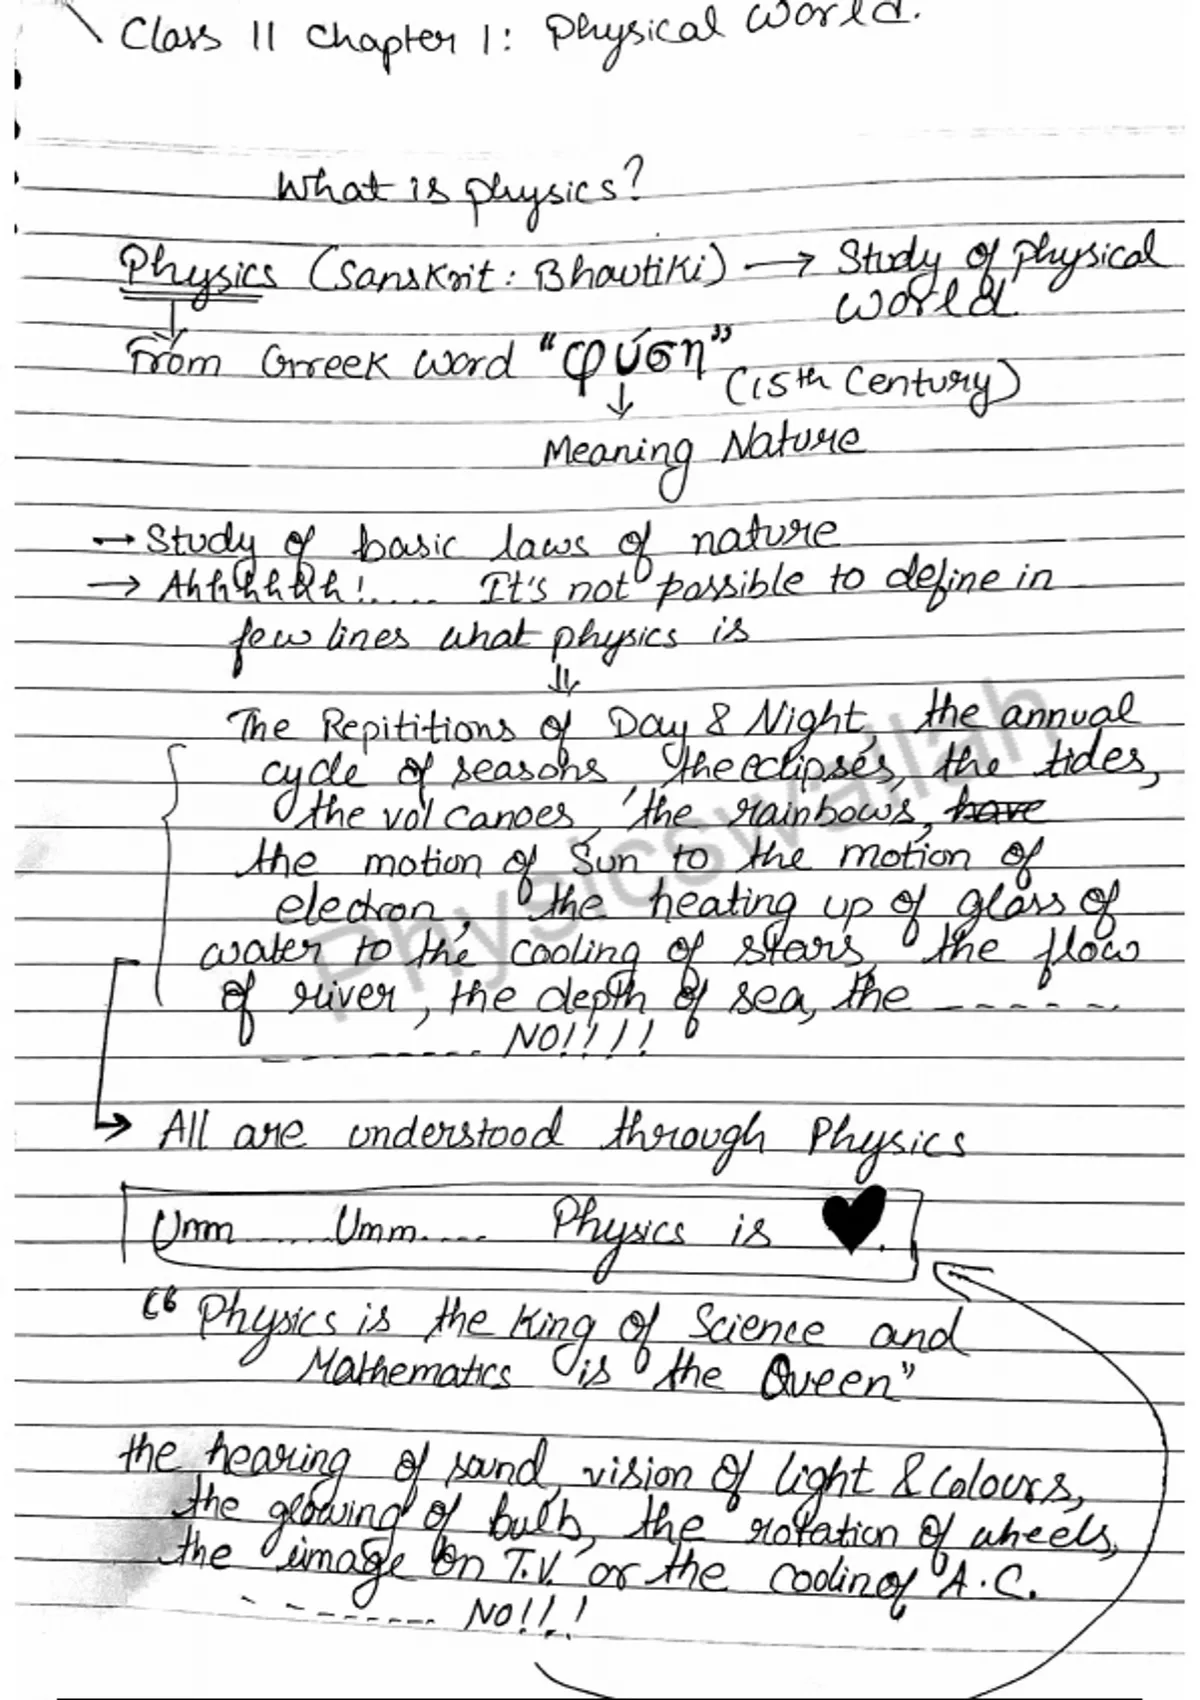 Class 11 Chapter 1: Physical World.
What is physics?
Physics (Sanskrit: Bhautiki) → Study of physical
world.
From Greek word "φύση"
(15th Century)
Meaning Nature
→ Study of basic laws of nature
→ Ahhhhhh!..... It's not possible to define in
few lines what physics is
The Repititions of Day & Night, the annual
cycle of seasons the eclipses, the tides,
the volcanoes, the rainbows, have
the motion of Sun to the motion of
electron, the heating up of glass of
water to the cooling of stars, the flow
of river, the depth of sea, the ------
---------- NO!!!!
→ All are understood through Physics
Umm.......Umm..... Physics is ♥.
"Physics is the King of Science and
Mathematics is the Queen"
the hearing of sound, vision of light & colours,
the glowing of bulb, the rotation of wheels,
the image on T.V. or the coolin of A.C.
--------- NO!!!
Physicswallah